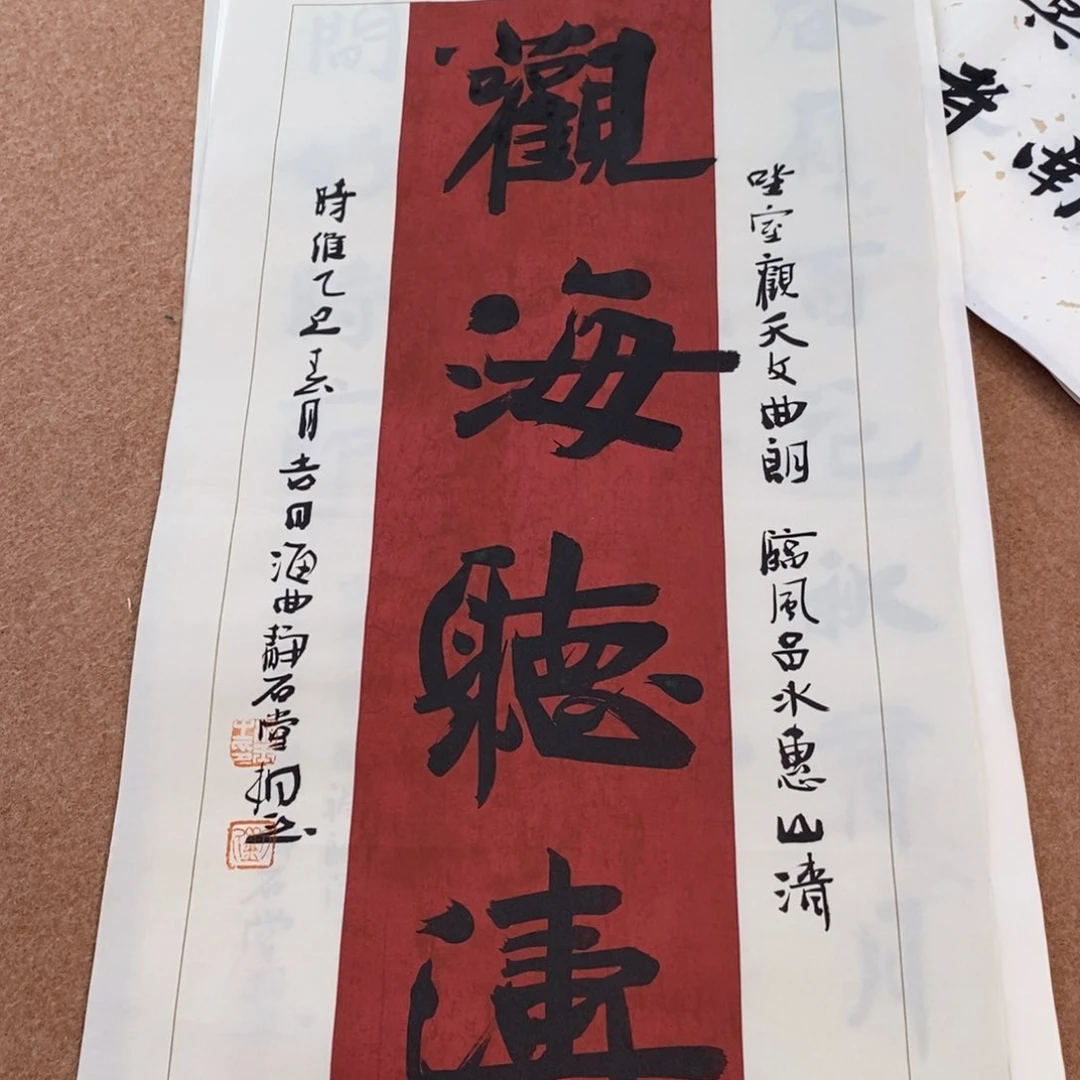 坐室觀天文曲朗 臨風呂水惠山清
觀海聽濤
時維乙巳春月吉日海曲靜石堂